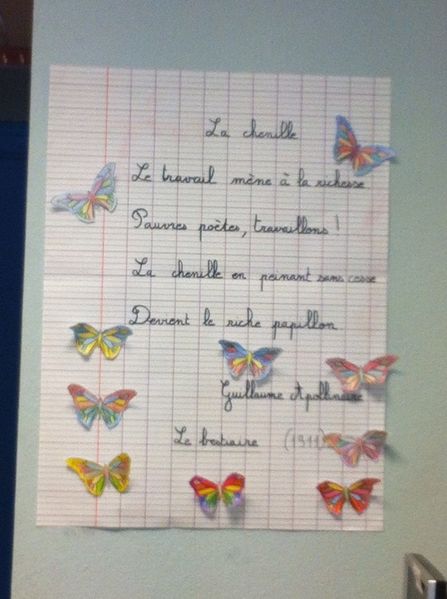 La chenille
Le travail mène à la richesse
Pauvres poètes, travaillons !
La chenille en peinant sans cesse
Devient le riche papillon
Guillaume Apollinaire
Le bestiaire (1911)